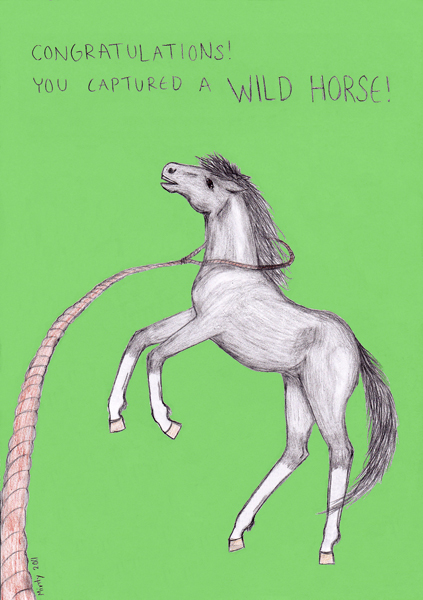 CONGRATULATIONS!
YOU CAPTURED A WILD HORSE!
Minty 2011